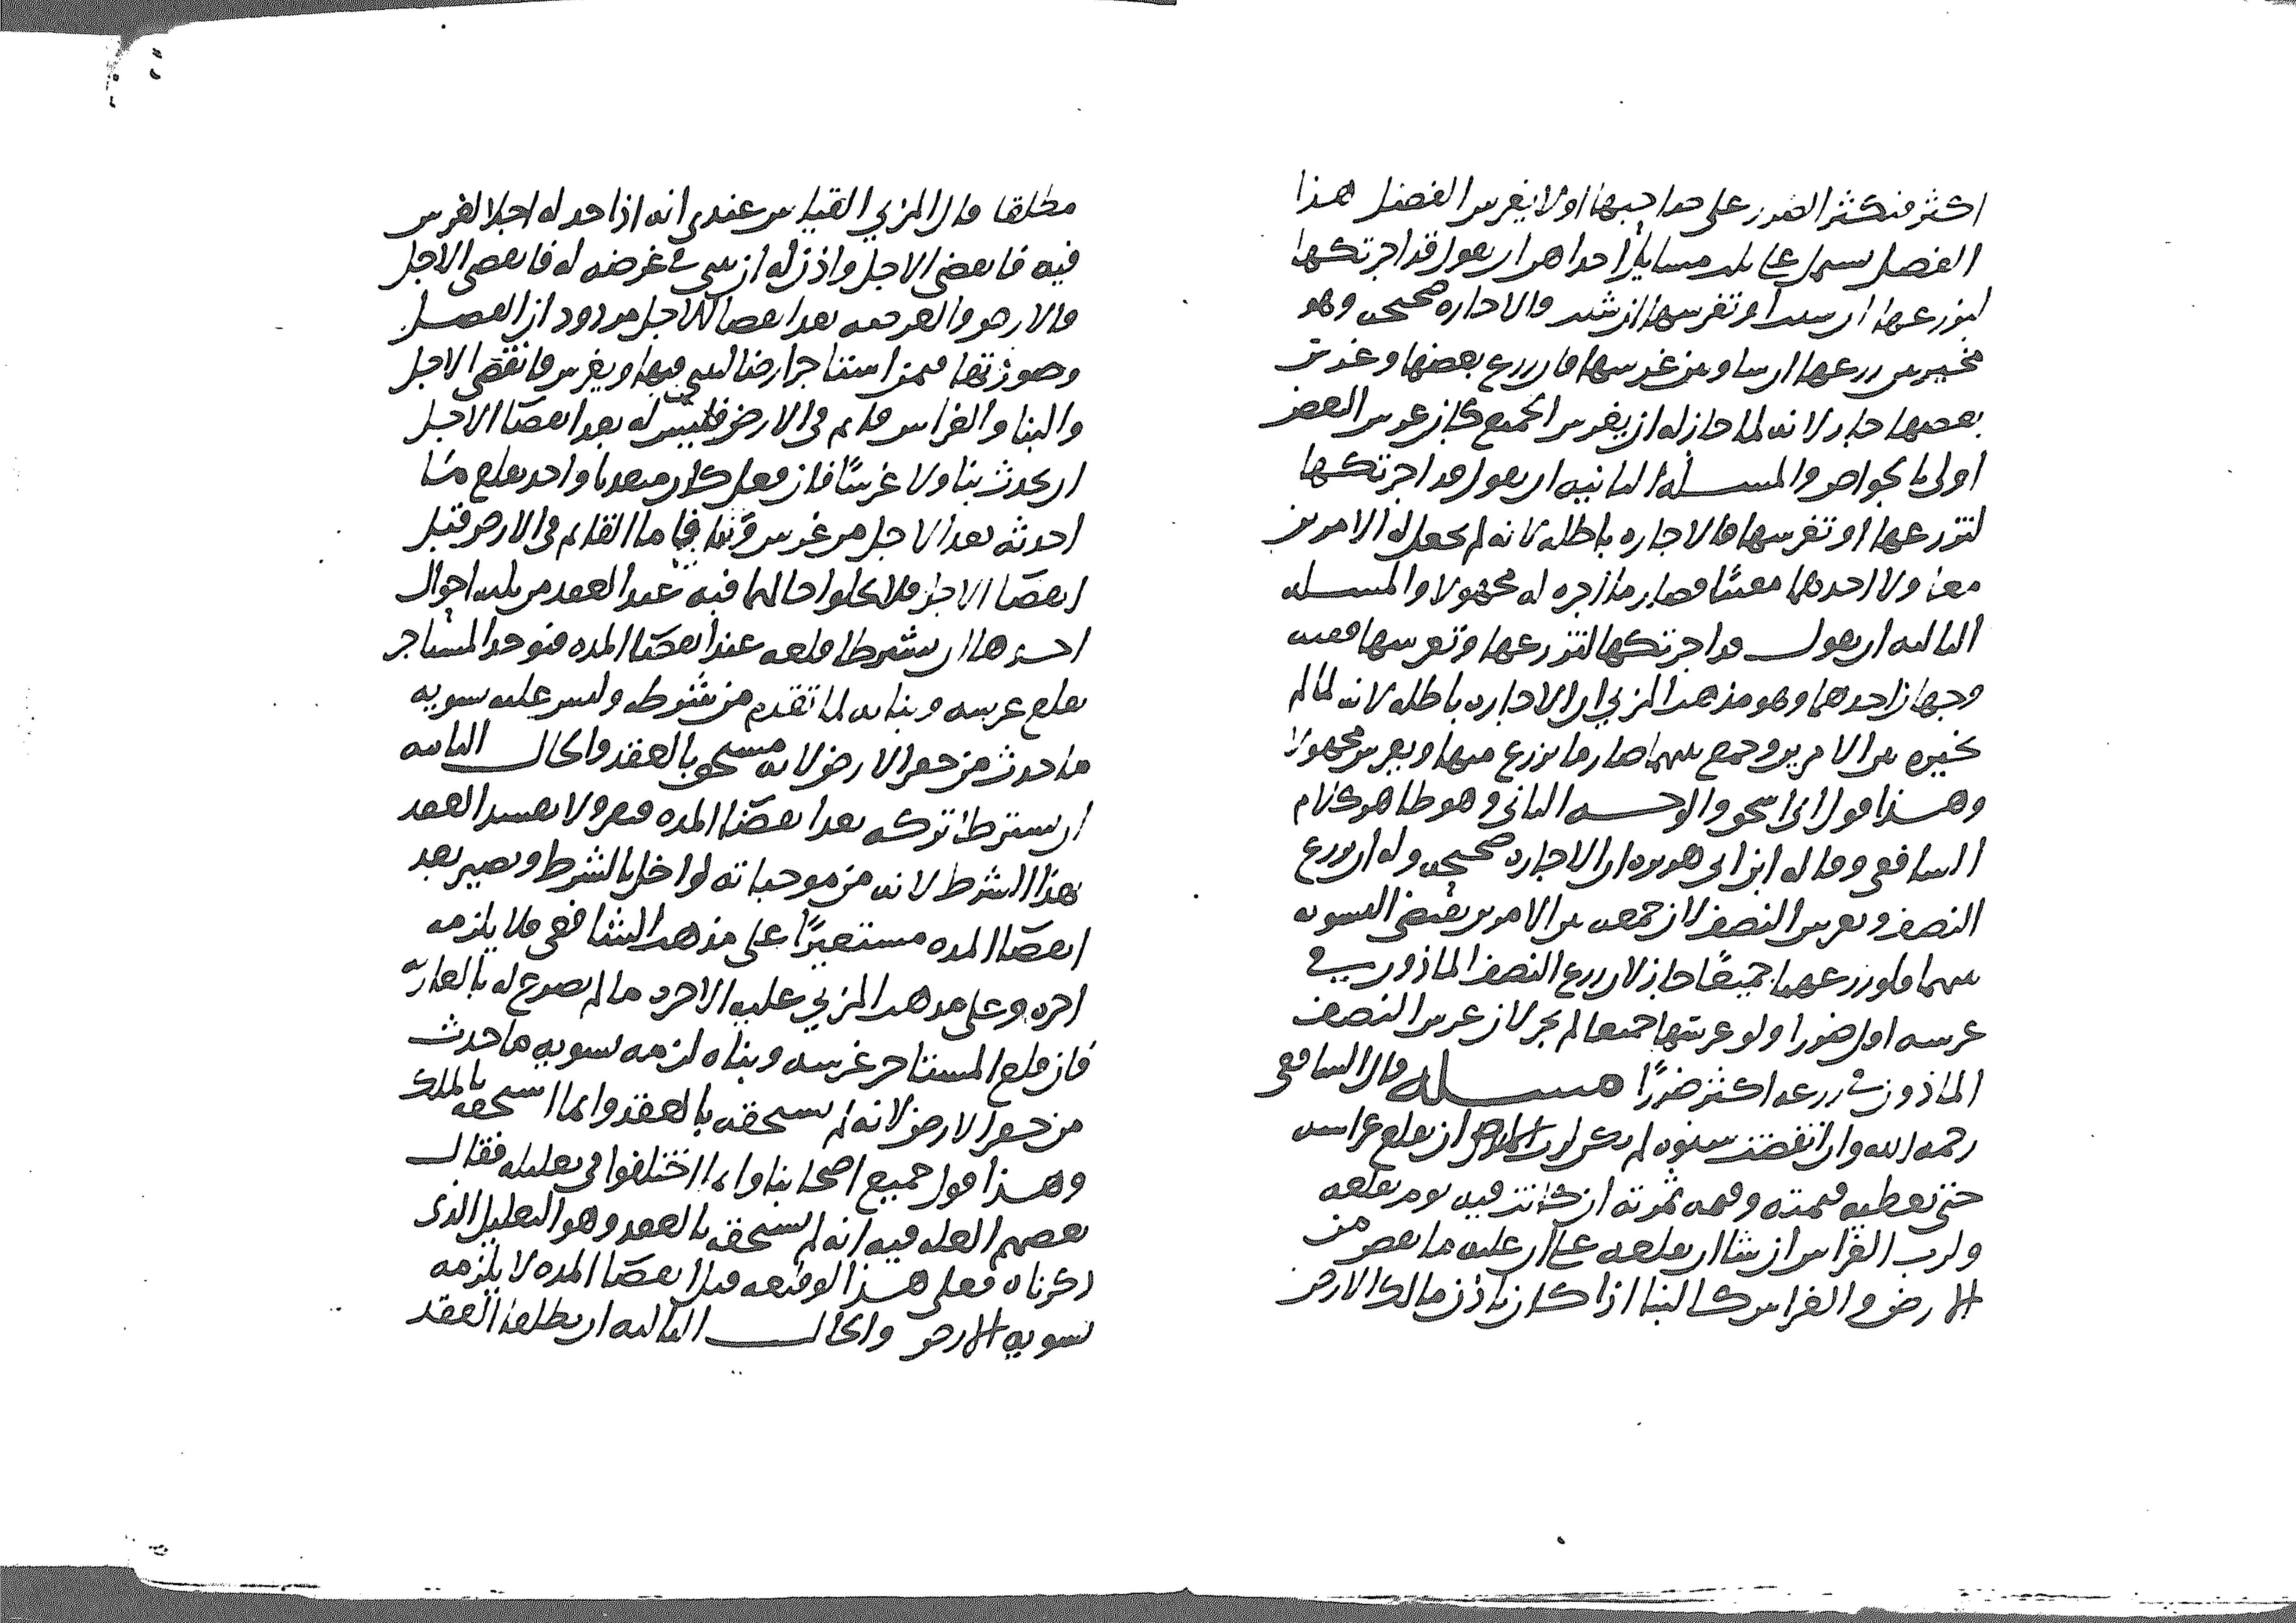 اكثر فتكثر الضرر على صاحبها اولا يغرس الفصل هذا
الفصل يشتمل على ثلث مسايل احداهن ان يقول قد اجرتكها
لتزرعها ان شيت او تغرسها ان شيت والاجاره صحيحه وهو
مخير بين زرعها ان شا وبين غرسها فان زرع بعضها وغرس
بعضها جاز لانه لما جاز له ان يغرس الجميع كان غرس البعض
اولى بالجواز والمسله الثانيه ان يقول قد اجرتكها
لتزرعها او تغرسها فالاجاره باطله لانه لم يجعل له الامرين
معا ولا احدهما معينا فصار ما اجره له مجهولا والمسله
الثالثه ان يقول قد اجرتكها لتزرعها وتغرسها ففيه
وجهان احدهما وهو مذهب المزني ان الاجاره باطله لانه لما لم
يخيره بين الامرين وجمع بينهما صار ما يزرع منها ويغرس مجهولا
وهذا قول ابي اسحق والوجه الثاني وهو ظاهر كلام
الشافعي وقاله ابن ابي هريره ان الاجاره صحيحه وله ان يزرع
النصف ويغرس النصف لان جمعه بين الامرين يقتضي التسويه
بينهما فلو زرعها جميعا جاز لان زرع النصف الماذون في
غرسه اقل ضررا ولو غرسها جميعا لم يجز لان غرس النصف
الماذون في زرعه اكثر ضررا مسله قال الشافعي
رحمه الله وان انقضت سنوه لم يكن لرب الارض ان يقلع غراسه
حتى يعطيه قيمته وقيمه ثمرته ان كانت فيه يوم يقلعه
ولرب الغراس ان شا ان يقلعه على ان عليه ما نقص من
الارض والغراس كالبنا اذا كان باذن مالك الارض
مطلقا قال المزني القياس عندي انه اذا حد له اجلا لغرس
فيه فانقضى الاجل واذن له ان يبني في عرصه له فانقضى الاجل
فالارض والعرصه بعد انقضا الاجل مردود ان الفصل
وصورتها فيمن استاجر ارضا ليبني فيها ويغرس فانقضى الاجل
والبنا والغراس قايم في الارض فليس له بعد انقضا الاجل
ان يحدث بنا ولا غرسا فان فعل كان متعديا واخذ بقلع ما
احدثه بعد الاجل من غرس وبنا فاما القايم في الارض قبل
انقضا الاجل فلا يخلوا حالهما فيه عند العقد من ثلثه احوال
احدها ان يشترطا قلعه عند انقضا المده فيوخذ المستاجر
بقلع غرسه وبنايه لما تقدم من شرطه وليس عليه تسويه
ما حدث من حفر الارض لانه مستحق بالعقد والحال الثانيه
ان يشترطا تركه بعد انقضا المده فيقر ولا يفسد العقد
بهذا الشرط لانه من موجباته لو اخل بالشرط ويصير بعد
انقضا المده مستعيرا على مذهب الشافعي فلا يلزمه
اجره وعلى مذهب المزني عليه الاجره ما لم يصرح له بالعاريه
فان قلع المستاجر غرسه وبناه لزمه تسويه ما حدث
من حفر الارض لانه لم يستحقه بالعقد وانما استحقه بالملك
وهذا قول جميع اصحابنا وانما اختلفوا في تعليله فقال
بعضهم العله فيه انه لم يستحقه بالعقد وهو التعليل الذي
ذكرناه فعلى هذا لو قلعه قبل انقضا المده لا يلزمه
تسويه الارض والحال الثالثه ان يطلقا العقد